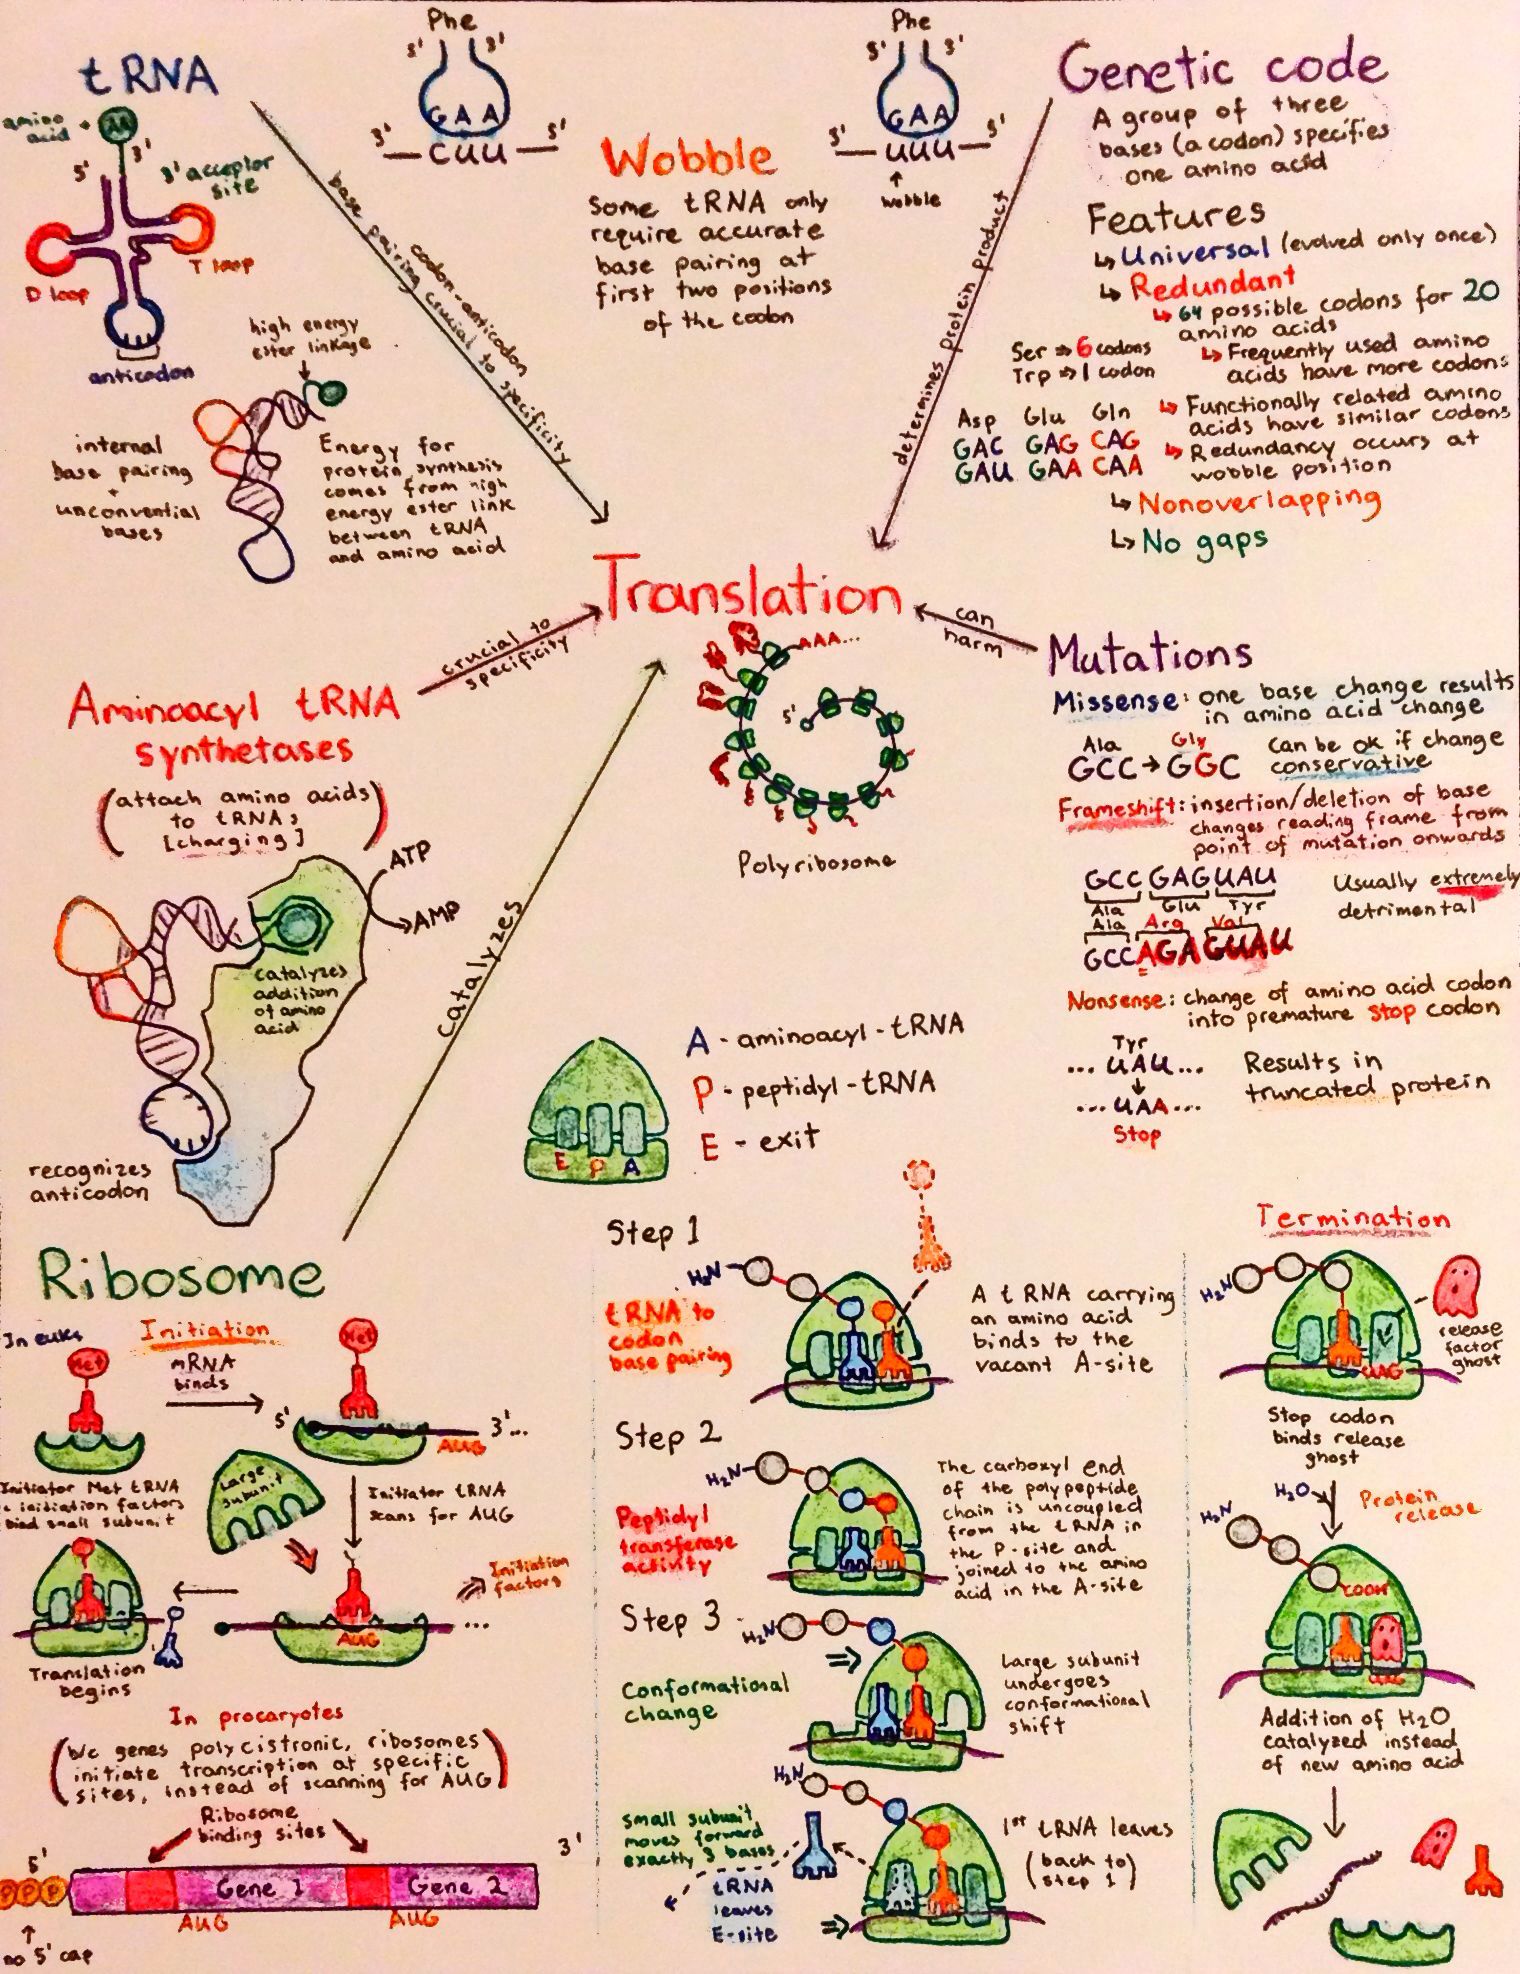 tRNA
amino
acid
AA
5'
3'
3' acceptor
site
D loop
T loop
anticodon
high energy
ester linkage
internal
base pairing
+
unconvential
bases
Energy for
protein synthesis
comes from high
energy ester link
between tRNA
and amino acid
Phe
5' 3'
GAA
3' CUU 5'
codon-anticodon
base pairing crucial to specificity
Wobble
Some tRNA only
require accurate
base pairing at
first two positions
of the codon
Phe
5' 3'
GAA
3' UUU 5'
↑
wobble
Genetic code
A group of three
bases (a codon) specifies
one amino acid
Features
↳ Universal (evolved only once)
↳ Redundant
↳ 64 possible codons for 20
amino acids
Ser ⇒ 6 codons
Trp ⇒ 1 codon
↳ Frequently used amino
acids have more codons
Asp Glu Gln
GAC GAG CAG
GAU GAA CAA
↳ Functionally related amino
acids have similar codons
↳ Redundancy occurs at
wobble position
↳ Nonoverlapping
↳ No gaps
determines protein product
Translation
crucial to
specificity
can
harm
AAA...
5'
Polyribosome
Aminoacyl tRNA
synthetases
(attach amino acids
to tRNAs
[charging])
ATP
AMP
catalyzes
addition
of amino
acid
recognizes
anticodon
catalyzes
Mutations
Missense: one base change results
in amino acid change
Ala Gly
GCC → GGC
Can be ok if change
conservative
Frameshift: insertion/deletion of base
changes reading frame from
point of mutation onwards
GCC GAG UAU
Ala Glu Tyr
Ala Arg Val
GCC AGA GUAU
Usually extremely
detrimental
Nonsense: change of amino acid codon
into premature stop codon
Tyr
... UAU ...
↓
... UAA ...
Stop
Results in
truncated protein
E P A
A - aminoacyl-tRNA
P - peptidyl-tRNA
E - exit
Ribosome
In euks
Initiation
Met
mRNA
binds
Met
5' 3'...
AUG
Initiator Met tRNA
initiation factors
bind small subunit
Large
subunit
Initiator tRNA
scans for AUG
AUG
...
Initiation
factors
Translation
begins
In procaryotes
(b/c genes polycistronic, ribosomes
initiate transcription at specific
sites, instead of scanning for AUG)
Ribosome
binding sites
5' 3'
PPP Gene 1 Gene 2
AUG AUG
↑
no 5' cap
Step 1
H₂N
tRNA to
codon
base pairing
A tRNA carrying
an amino acid
binds to the
vacant A-site
Step 2
H₂N
Peptidyl
transferase
activity
The carboxyl end
of the polypeptide
chain is uncoupled
from the tRNA in
the P-site and
joined to the amino
acid in the A-site
Step 3
H₂N
Conformational
change
Large subunit
undergoes
conformational
shift
H₂N
small subunit
moves forward
exactly 3 bases
tRNA
leaves
E-site
1st tRNA leaves
(back to
step 1)
Termination
H₂N
UAG
release
factor
ghost
Stop codon
binds release
ghost
H₂O
Protein
release
H₂N
COOH
UAG
Addition of H₂O
catalyzed instead
of new amino acid